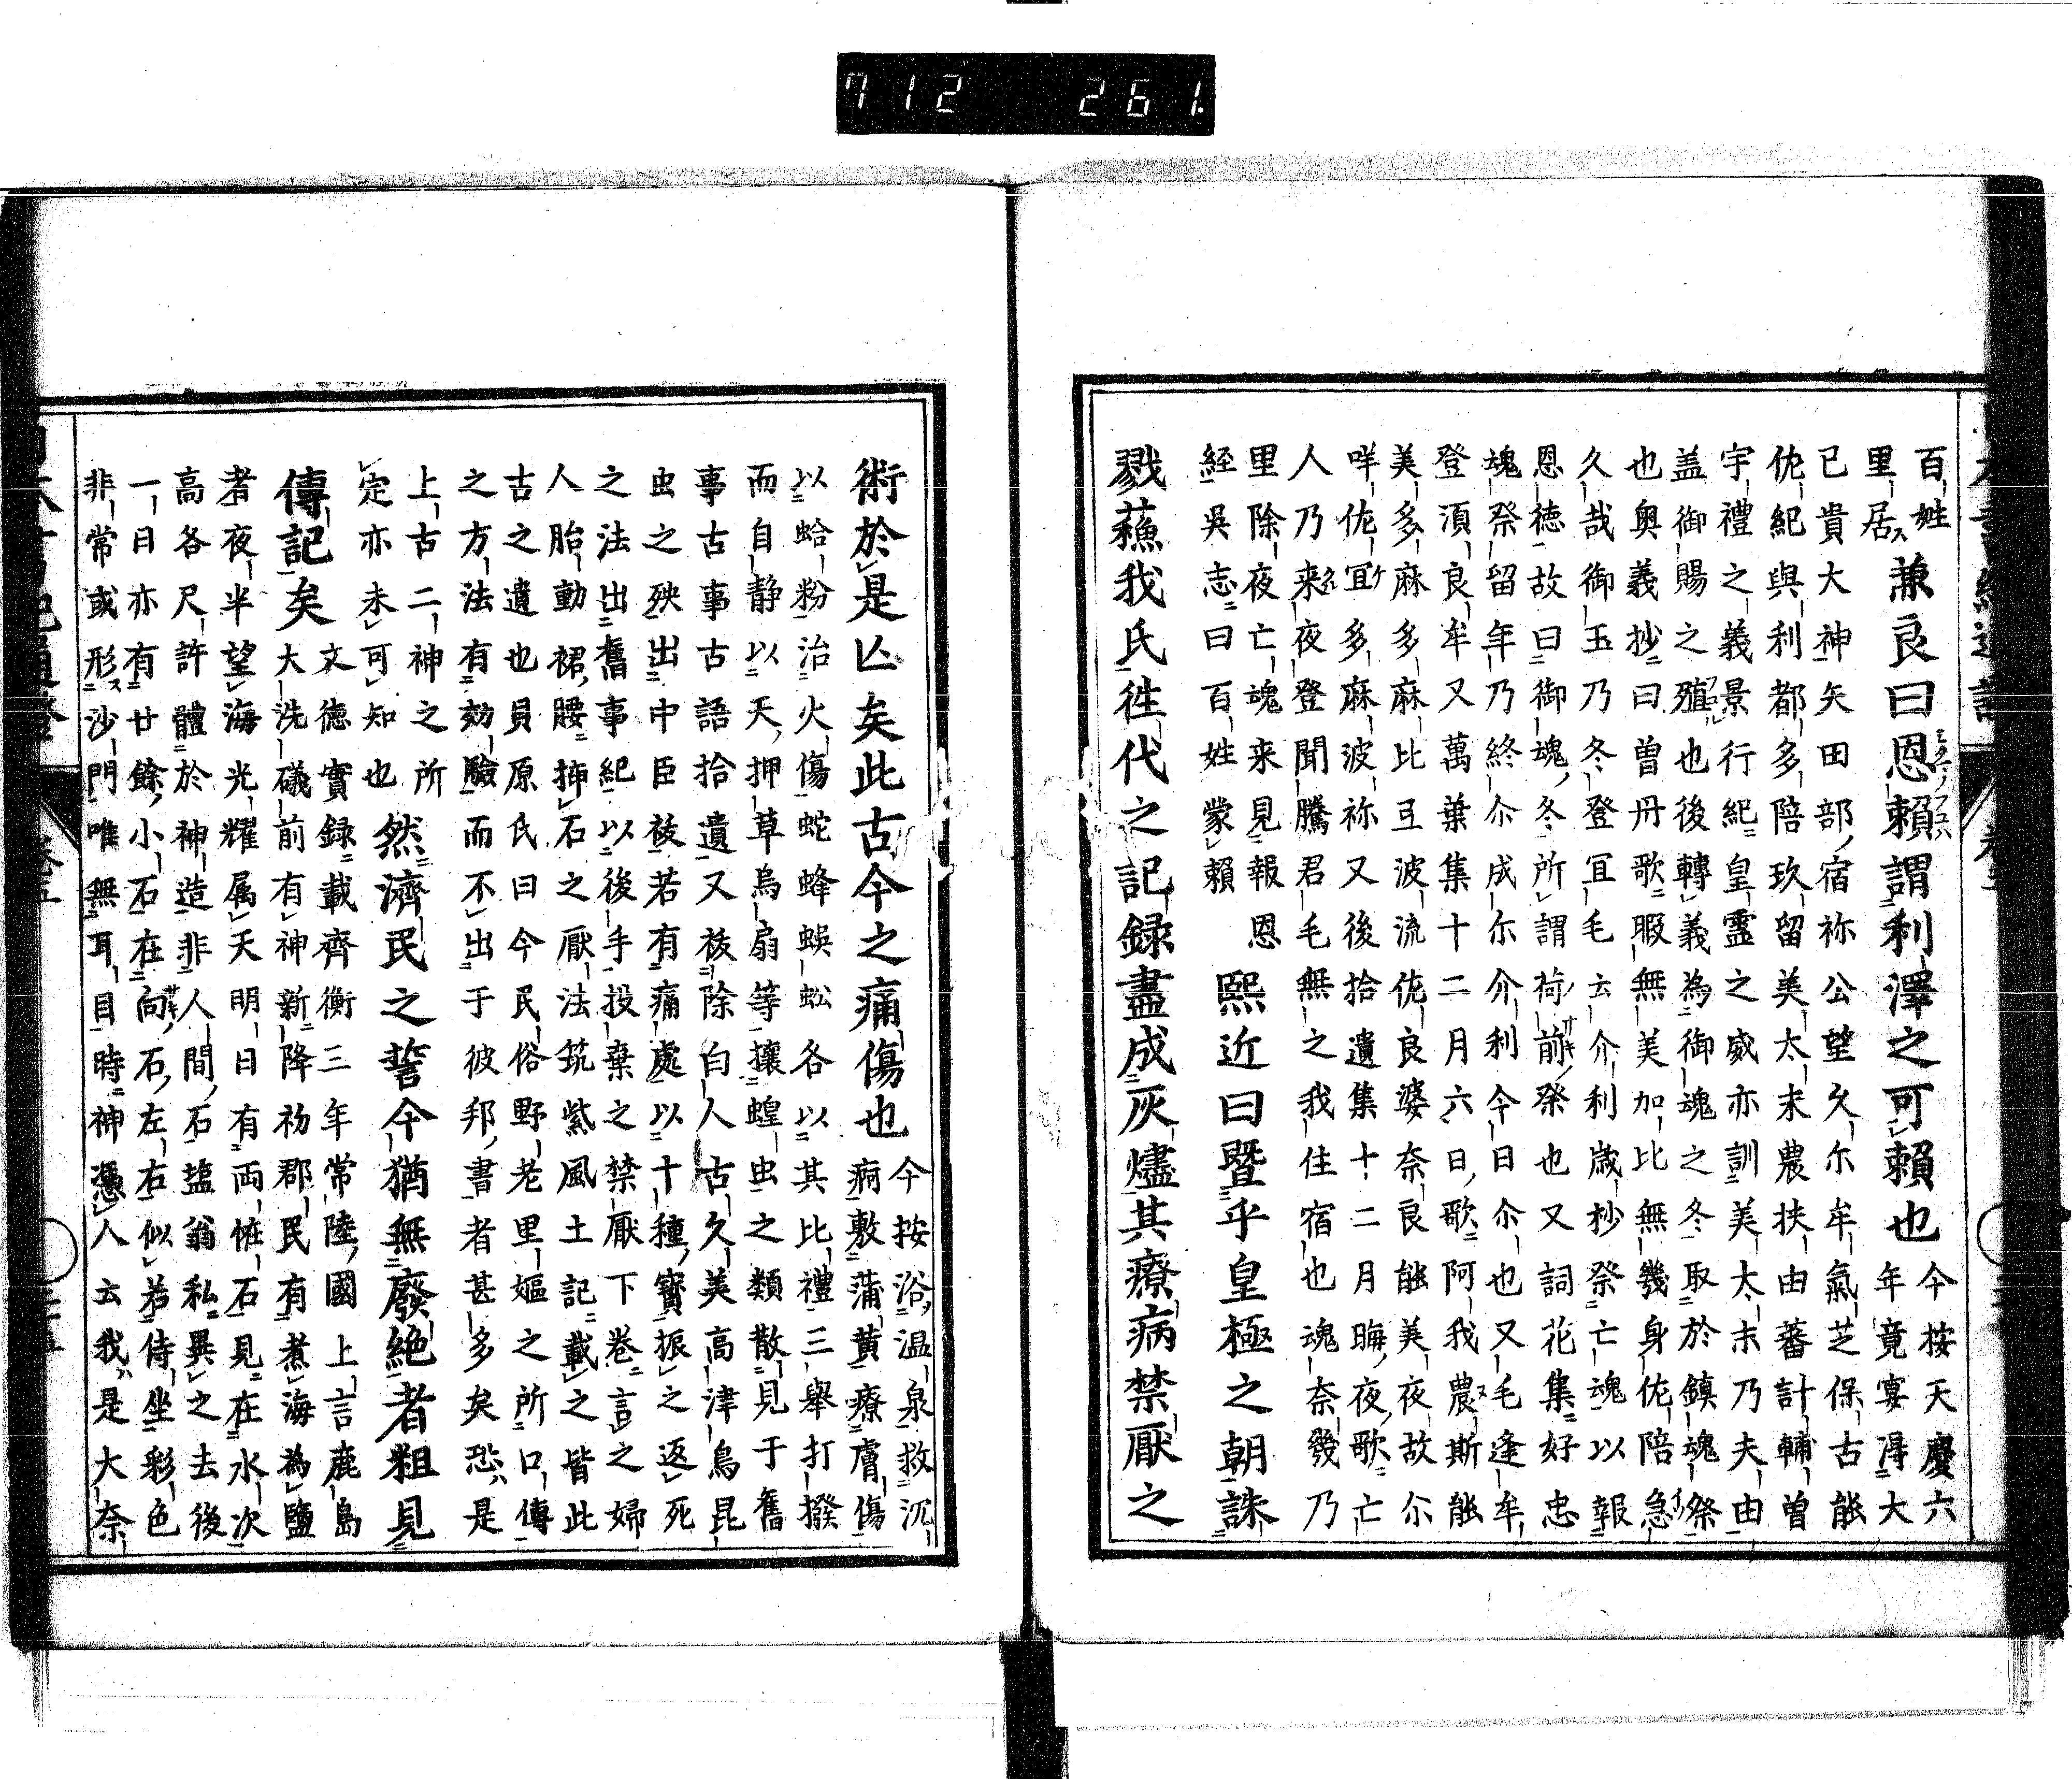 712 261.
百姓
里居 兼良曰恩賴謂利澤之可賴也 今按天慶六
年竟宴得大
已貴大神矢田部宿祢公望久尔牟氣芝保古能
佐紀與利都多陪玖留美太末農扶由蕃計輔曽
宇禮之義景行紀皇靈之威亦訓美太末乃夫由
盖御賜之殖也後轉義為御魂之冬取於鎮魂祭
也奧義抄曰曽丹歌暇無美加比無幾身佐陪急
久哉御玉乃冬登冝毛云介利歳杪祭亡魂以報
恩徳故曰御魂冬所謂荷前祭也又詞花集好忠
魂祭留年乃終尒成尓介利今日尒也又毛逢牟
登湏良牟又萬葉集十二月六日歌阿我農斯能
美多麻多麻比弖波流佐良婆奈良能美夜故尓
咩佐冝多麻波祢又後拾遺集十二月晦夜歌亡
人乃来夜登聞騰君毛無之我住宿也魂奈幾乃
里除夜亡魂来見報恩
経吳志曰百姓蒙賴 熙近曰曁乎皇極之朝誅
戮蘓我氏往代之記録盡成灰燼其療病禁厭之
術於是亾矣此古今之痛傷也 今按浴温泉救沉
痾敷蒲黄療膚傷
以蛤粉治火傷蛇蜂蜈蚣各以其比禮三舉打撥
而自静以天押草烏扇等攘蝗虫之類散見于舊
事古事古語拾遺又祓除白人古久美高津鳥昆
虫之殃出中臣祓若有痛處以十種寳振之返死
之法出舊事紀以後手投棄之禁厭下卷言之婦
人胎動裙腰挿石之厭法筑紫風土記載之皆此
古之遺也貝原氏曰今民俗野老里嫗之所口傳
之方法有効驗而不出于彼邦書者甚多矣恐是
上古二神之所
定亦未可知也 然濟民之誓今猶無廢絶者粗見
傳記矣 文徳實録載齊衡三年常陸國上言鹿島
大洗礒前有神新降初郡民有煮海為鹽
者夜半望海光耀属天明日有兩恠石見在水次
高各尺許體於神造非人間石塩翁私異之去後
一日亦有廿餘小石在向石左右似若侍坐彩色
非常或形沙門唯無耳目時神憑人云我是大奈